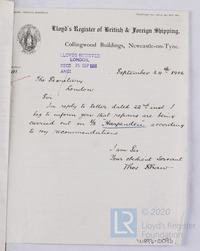 Lloyd's Register of British & Foreign Shipping.
Collingwood Buildings, Newcastle-on-Tyne.
LLOYD'S REGISTER
LONDON
RECD 25 SEP
September 24th 1906
The Secretary
London
Sir
In reply to letter dated 22nd inst I
beg to inform you that repairs are being
carried out on S/S "Harpenden" according
to my recommendations
I am Sir
Your obedient Servant
© 2020
Lloyd's Register
Foundation